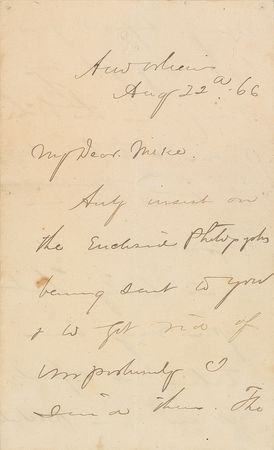 New Orleans
Aug 22d. 66
My Dear Mike.
insist on
the Enclosed Photographs
being sent to you
& to get rid of
importunity I
send them. The